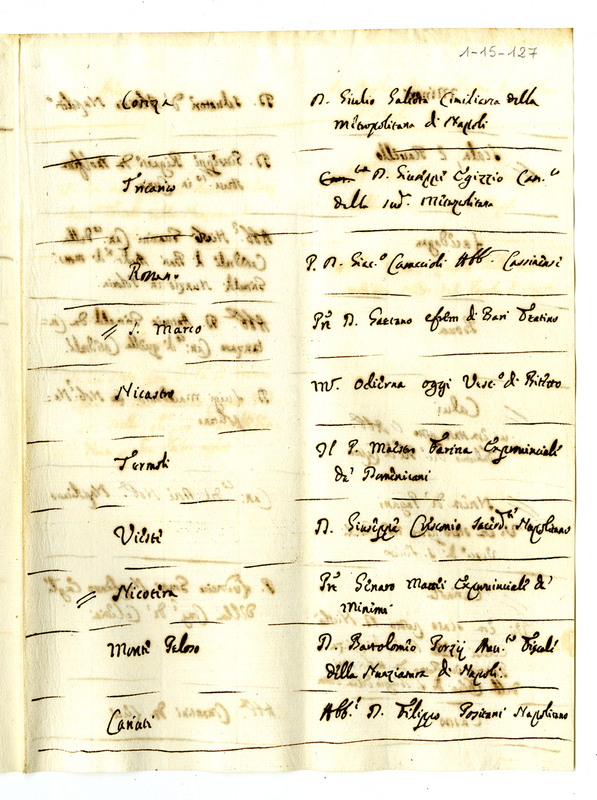 1-15-127
Cotrone
D. Giulio Galeota Cimiliarca della
Metropolitana di Napoli
Tricarico
D. Giuseppe Egizzio Can.co
della sud.a Metropolitana
P. D. Giac.o Caraccioli Abb.e Cassinense
S. Marco
Pre D. Gaetano efrem di Bari Teatino
Nicastro
Mr. Odierna oggi Vesc.o di Bitetto
Termoli
Il P. Maestro Farina Exprovinciale
de' Domenicani
Viesti
D. Giuseppe Crisconio Sacerd.te Napolitano
Nicotera
Pre Genaro Mattei Exprovinciale de'
Minimi
Monte Peloso
D. Bartolomeo Porzij Avv.to Fiscale
della Nunziatura di Napoli
Cariati
Abb.e D. Filippo Positani Napolitano